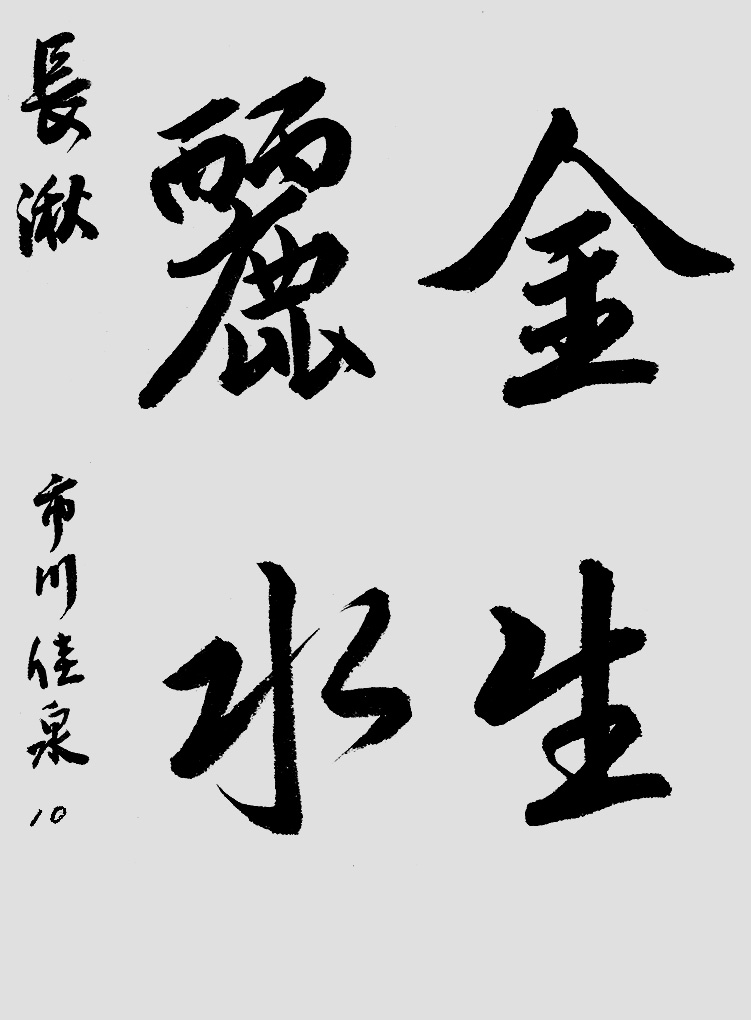 金生
麗水
長湫 市川佳泉 10